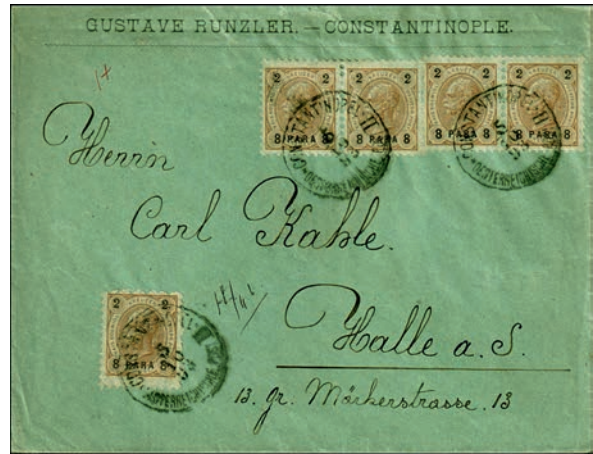 GUSTAVE RUNZLER. — CONSTANTINOPLE.
2 2 2 2 2 2 2 2
8 PARA 8 8 PARA 8 8 PARA 8 8 PARA 8
CONSTANTINOPEL II
CONSTANTINOPEL II
Herrn
Carl Kahle.
Halle a. S.
13. gr. Märkerstrasse. 13
2 2
8 PARA 8